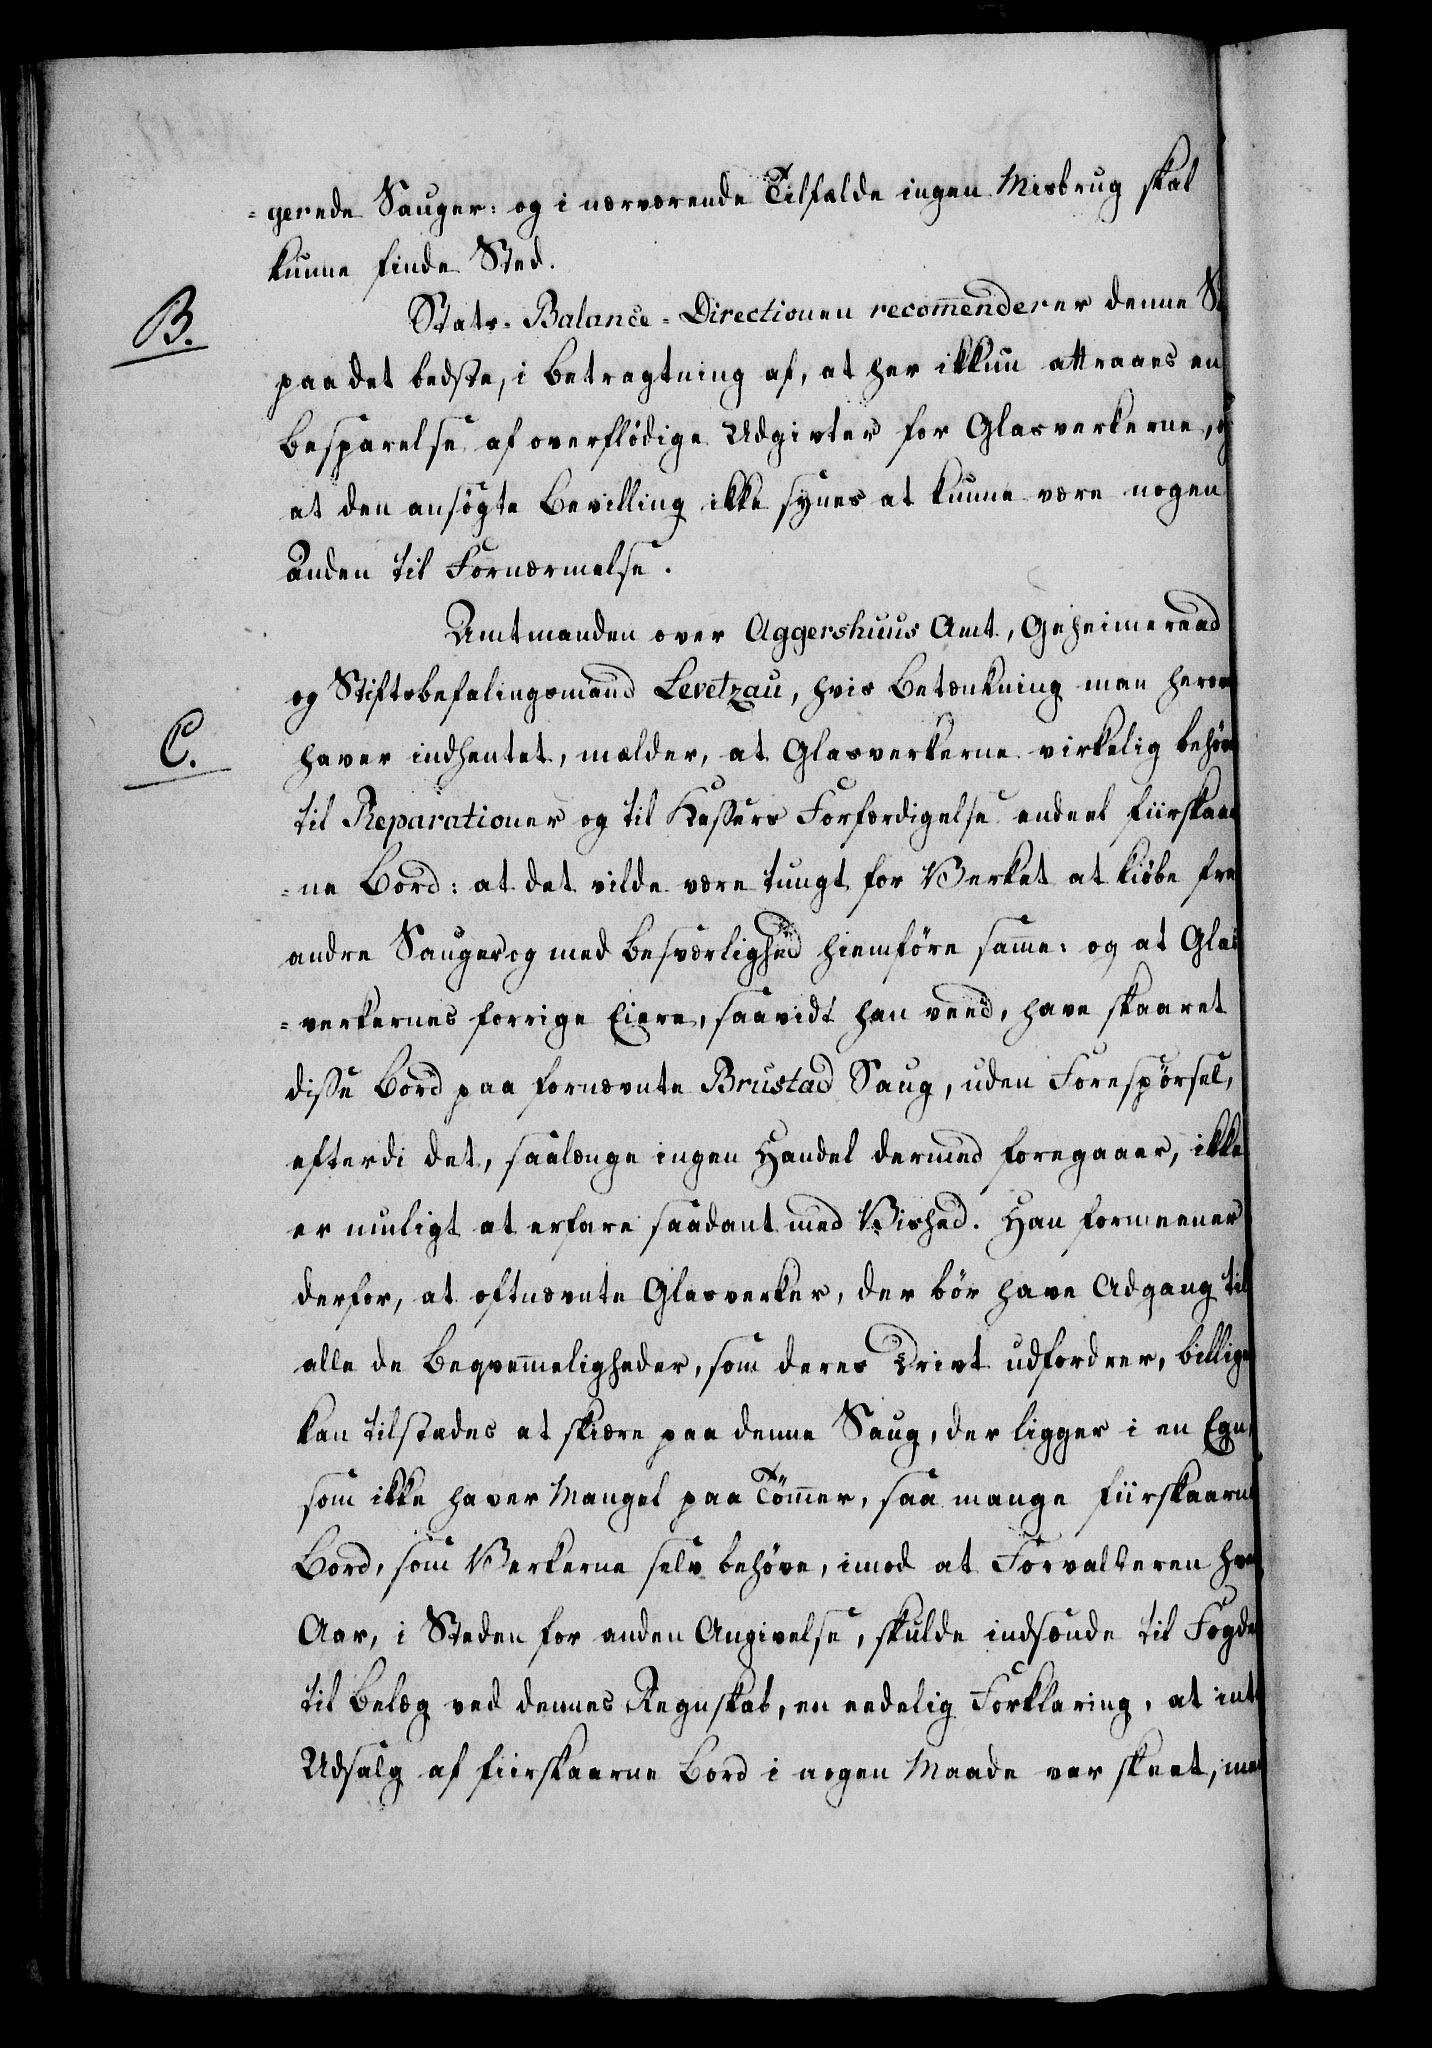 =gerede Sauger: og i nærværende Tilfælde ingen Misbrug skal
kunne finde Sted.
B.
Stats-Balance-Directionen recom̄enderer denne
paa det bedste, i Betragtning af, at her ikkun attraaes en
Besparelse af overflödige Udgivter for Glasverkerne,
at den ansögte Bevilling ikke synes at kunne være nogen
Anden til Fornærmelse.
Amtmanden over Aggershuus Amt, Geheimeraad
og Stiftsbefalingsmand Levetzau, hvis Betænkning man herom
C.
haver indhentet, melder, at Glasverkerne virkelig behöv
til Reparationer og til Kassers Forfærdigelse endeel fiirskaar
=ne Bord: at det vilde være tungt for Verket at kiöbe fra
andre Sauger og med Besværlighed hiemföre sam̄e: og at Glas
=verkernes forrige Eiere, saavidt han veed, have skaaret
disse Bord paa fornævnte Brustad Saug, uden Forespörsel,
efterdi det, saalænge ingen Handel dermed foregaaer, ikke
er muligt at erfare saadant med Vished. Han formeener
derfor, at oftnævnte Glasverker, der bör have Adgang til
alle de Beqvem̄eligheder, som deres Drivt udfordrer, billigen
kan tilstædes at skiære paa denne Saug, der ligger i en Egn,
som ikke haver Mangel paa Töm̄er, saa mange fiirskaarne
Bord, som Verkerne selv behöve, imod at Forvalteren hver
Aar, i Steden for anden Angivelse, skulde indsende til Fogden
til Belæg ved dennes Regnskab, en eedelig Forklaring, at intet
Udsalg af fiirskaarne Bord i nogen Maade var skeet, men